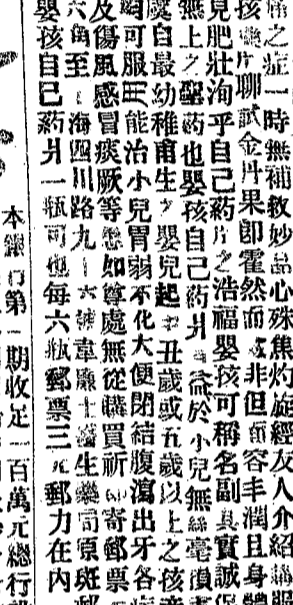 痛之症一時無補救妙品心殊焦灼旋經友人介紹購服
孩片聊試金丹果卽霍然而非但面容丰潤且身體
見肥壯洵乎自己藥片之浩福嬰孩可稱名副其實誠
無上之聖藥也嬰孩自己藥片有益於小兒無絲毫損
自最幼稚甫生之嬰兒起至丑歲或五歲以上之孩
均可服能治小兒胃弱不化大便閉結腹瀉出牙各
及傷風感冒痰厥等如尊處無從購買祈卽寄郵票
六角至上海四川路九十六號韋廉士醫生藥局原班郵
嬰孩自己藥片一瓶可也每六瓶郵票三元郵力在内
本銀行第一期收足一百萬元總行